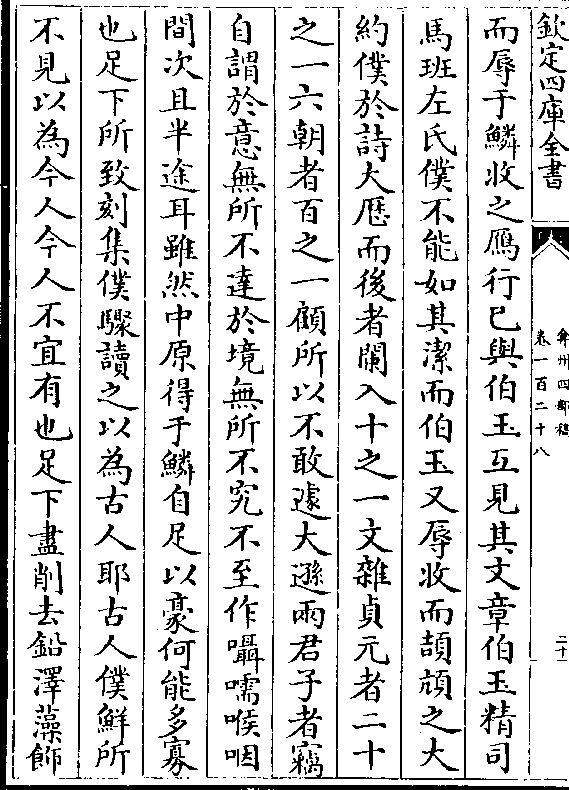 欽定四庫全書
弇州四部稿
卷一百二十八
二十
而辱于鱗收之鴈行已與伯玉互見其文章伯玉精司
馬班左氏僕不能如其潔而伯玉又辱收而頡頏之大
約僕於詩大厯而後者闌入十之一文雜貞元者二十
之一六朝者百之一顧所以不敢遽大遜兩君子者竊
自謂於意無所不達於境無所不究不至作囁嚅喉咽
間次且半途耳雖然中原得于鱗自足以豪何能多寡
也足下所致刻集僕驟讀之以為古人耶古人僕鮮所
不見以為今人今人不宜有也足下盡削去鉛澤藻飾